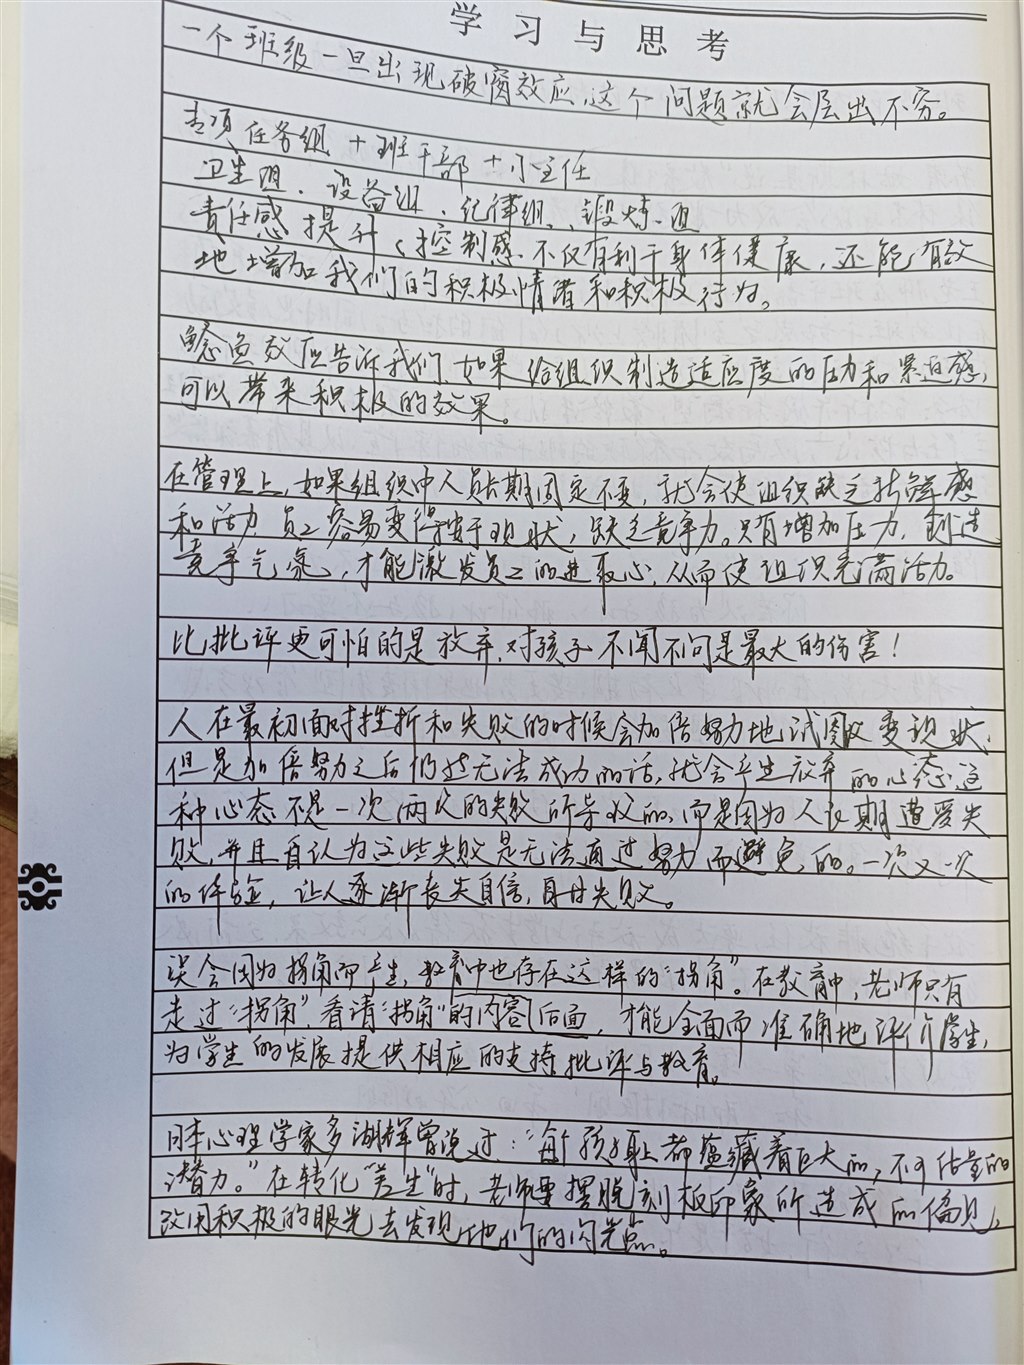 学习与思考
一个班级一旦出现破窗效应,这个问题就会层出不穷。
专项任务组 + 班干部 + 小主任
卫生组、设备组、纪律组、锻炼组
责任感提升、控制感、不仅有利于身体健康,还能有效
地增加我们的积极情绪和积极行为。
鲶鱼效应告诉我们,如果给组织制造适应度的压力和紧迫感,
可以带来积极的效果。
在管理上,如果组织中人员长期固定不变,就会使组织缺乏新鲜感
和活力,员工容易变得安于现状,缺乏竞争力。只有增加压力,创造
竞争气氛,才能激发员工的进取心,从而使组织充满活力。
比批评更可怕的是放弃,对孩子不闻不问是最大的伤害!
人在最初面对挫折和失败的时候会加倍努力地试图改变现状,
但是加倍努力之后仍然无法成功的话,就会产生放弃的心态,这
种心态不是一次两次的失败所导致的,而是因为人长期遭受失
败,并且自认为这些失败是无法通过努力而避免的。一次又一次
的体验,让人逐渐丧失自信,自甘失败。
误会因为拐角而产生,教育中也存在这样的“拐角”。在教育中,老师只有
走过“拐角”,看清“拐角”的内容后面,才能全面而准确地评价学生,
为学生的发展提供相应的支持批评与教育。
日本心理学家多湖辉曾说过:“每个孩子身上都蕴藏着巨大的,不可估量的
潜力。”在转化“差生”时,老师要摆脱刻板印象所造成的偏见,
改用积极的眼光去发现他们的闪光点。